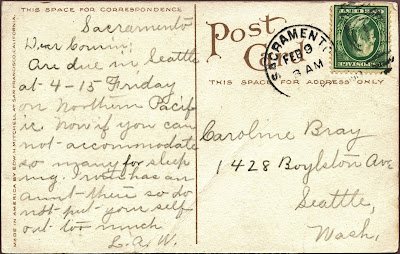 THIS SPACE FOR CORRESPONDENCE
Sacramento
Dear Cousin;
Are due in Seattle
at 4-15 Friday
on Northern Pacif
ic now if you can
not accommodate
so many for sleep
ing. Irvie has an
aunt there so do
not put your self
out too much
L.A.W.
MADE IN AMERICA BY EDW. H. MITCHELL SAN FRANCISCO, CALIFORNIA.
Post
Card
THIS SPACE FOR ADDRESS ONLY
SACRAMENTO
FEB 9
3 AM
Caroline Bray
1428 Boylston Ave
Seattle,
Wash,